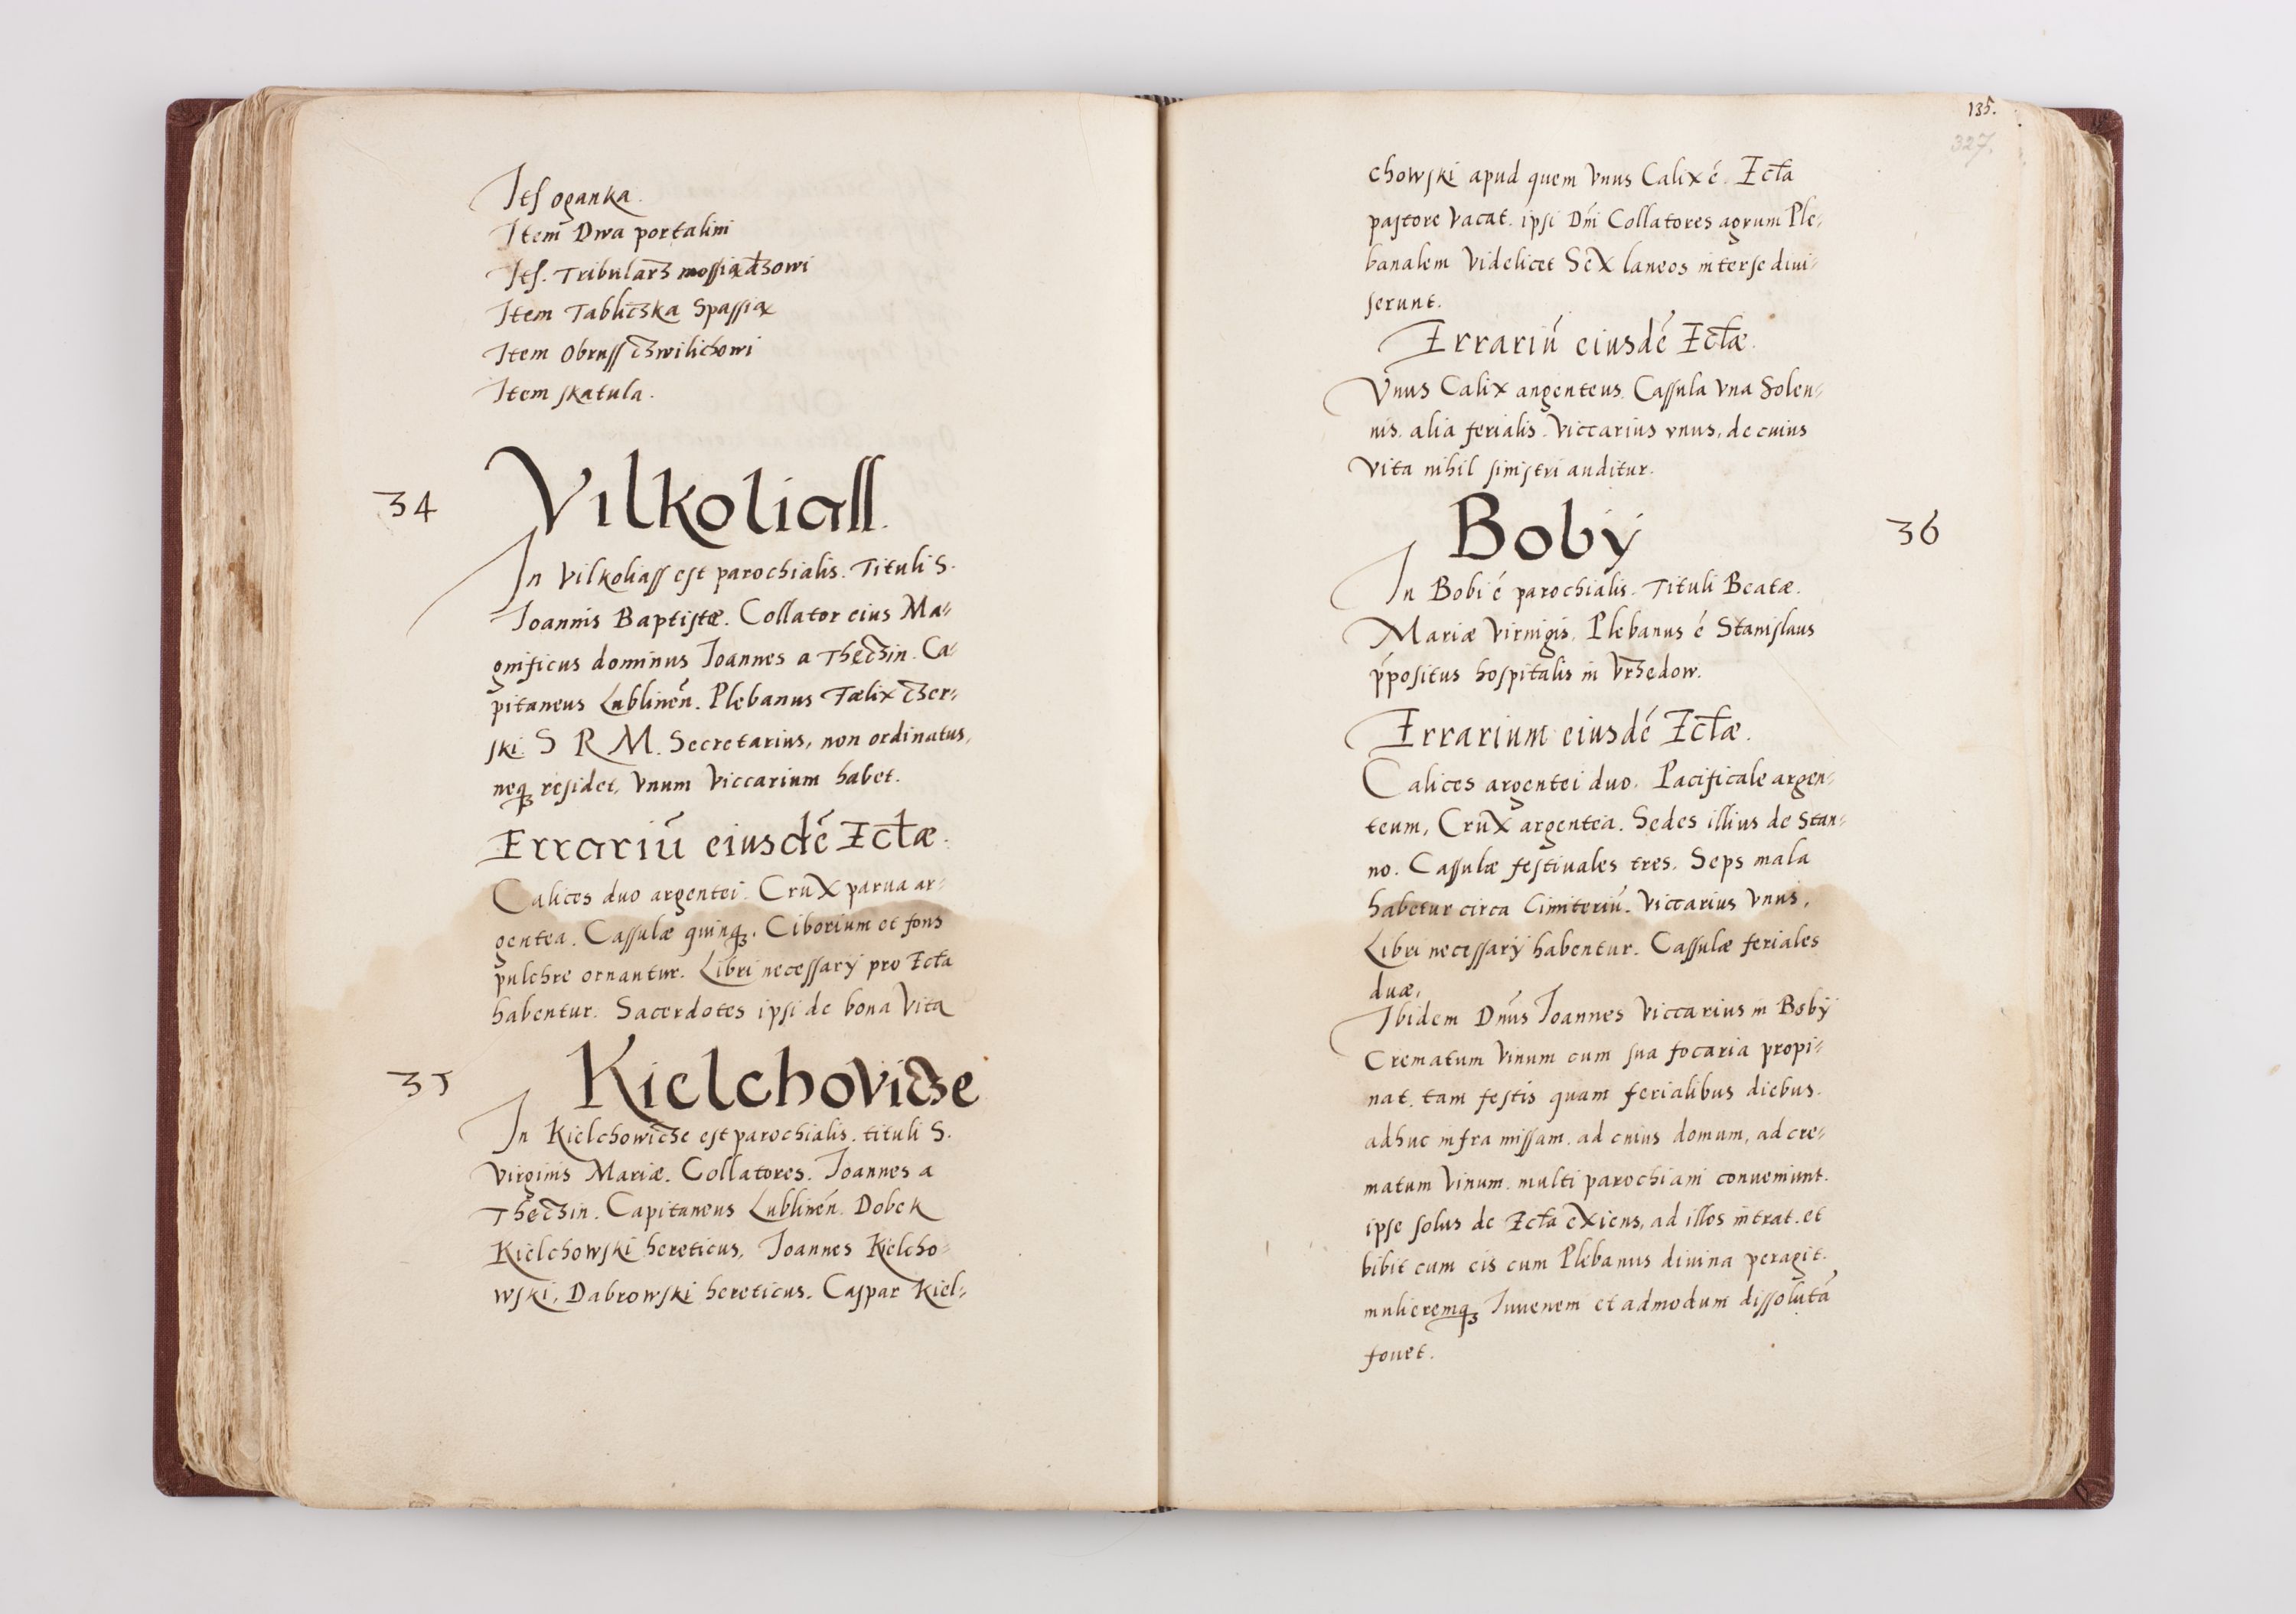 Itſ oganka.
Item̄ Dwa portalini
Itſ. Tribularz moſſiądzowi
Item Tabliczka Spaſſią
Item Obruſſ czwilichowi
Item ſkatula.
34 Vilkoliaſſ.
In Vilkoliaſſ eſt parochialis. Tituli S.
Ioannis Baptiſtæ. Collator eius Ma⸗
gnificus dominus Ioannes a Theczin. Ca⸗
pitaneus Lublinen̄. Plebanus Fælix Czer⸗
ſki. S R M. Secretarius, non ordinatus,
neqꝫ reſidet, Vnum Viccarium habet.
Errariū eiusdē Ecłæ.
Calices duo argentei. CruX parua ar⸗
gentea. Caſſulæ quinqꝫ. Ciborium et fons
pulchre ornantur. Libri neceſſarÿ pro Ecła
habentur. Sacerdotes ipſi de bona Vita
35 Kielchovicze
In Kielchowicze eſt parochialis. tituli S.
Virginis Mariæ. Collatores. Ioannes a
Theczin. Capitaneus Lublinen̄. Dobek
Kielchowſki hereticus, Ioannes Kielcho⸗
wſki, Dabrowſki hereticus. Caſpar Kiel⸗
135.
327.
chowſki apud quem Vnus Calix ē. Ecła
paſtore Vacat. ipſi Dn̄i Collatores agrum Ple⸗
banalem Videlicet SeX laneos inter ſe diui⸗
ſerunt.
Errariū eiusdē Ecłæ.
Vnus Calix argenteus. Caſſula Vna Solen⸗
nis. alia ferialis. Viccarius vnus, de cuius
Vita nihil ſiniſtri auditur.
Bobÿ 36
In Bobi ē parochialis. Tituli Beatæ.
Mariæ Virnigis. Plebanus ē Staniſlaus
p̄poſitus hoſpitalis in Vrzedow.
Errarium eiusdē Ecłæ.
Calices argentei duo. Pacificale argen⸗
teum, CruX argentea. Sedes illius de Stan⸗
no. Caſſulæ feſtiuales tres. Seps mala
habetur circa Cimiteriū. Viccarius Vnus,
Libri neceſſarÿ habentur. Caſſulæ feriales
duæ,
Ibidem Dn̄us Ioannes Viccarius in Bobÿ
Crematum Vinum cum ſua focaria propi⸗
nat. tam feſtis quam ferialibus diebus.
adhuc infra miſſam. ad cuius domum, ad cre⸗
matum Vinum. multi parochiani conueniunt.
ipſe ſolus de Ecła eXiens, ad illos intrat. et
bibit cum eis cum Plebanus diuina peragit.
mulieremqꝫ Iuuenem et admodum diſſolutā
fouet.